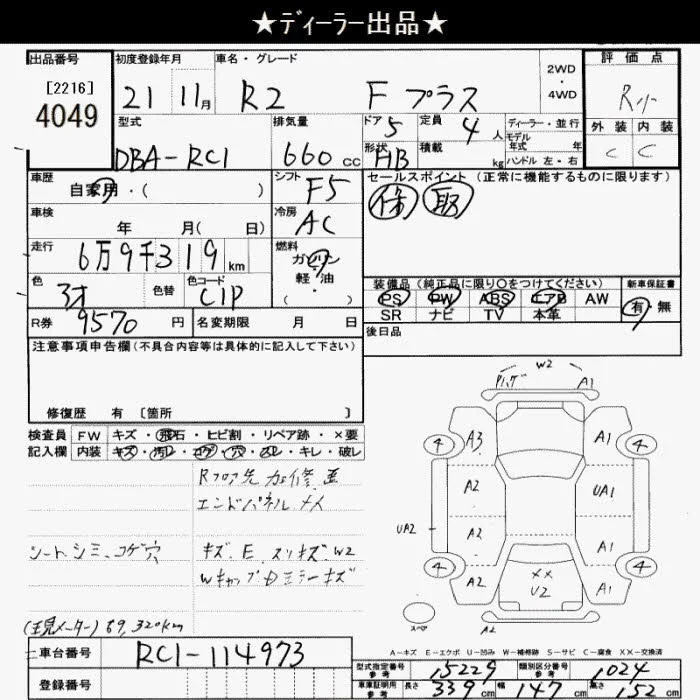 ★ディーラー出品★
出品番号 初度登録年月 車名・グレード 2WD・4WD 評価点
[2216]
4049
21 11月 R2 Fプラス
型式 排気量 ドア 5 定員 4人 ディーラー・並行 外装 内装
モデル年式 年
DBA-RC1 660cc 形状 HB 積載 kg ハンドル 左・右 C C
車歴 シフト セールスポイント (正常に機能するものに限ります)
自家用・( ) F5
車検 年 月( 日) 冷房 AC
走行 6万9千319km 燃料 ガソリン・軽・油・( )
色 色替 色コード C1P
装備品 (純正品に限り○をつけてください) 新車保証書
PS PW ABS エアB AW 有・無
SR ナビ TV 本革
R券 9570円 名変期限 月 日 後日品
注意事項申告欄(不具合内容等は具体的に記入して下さい)
修復歴 有 [箇所 ]
検査員記入欄 FW キズ・飛石・ヒビ割・リペア跡・×要
内装 キズ・汚レ・コゲ・穴・スレ・キレ・破レ
W2
A1
4 A3 A1 4
A2 UA1
UA2
A2 A1
4 A2 ×× A1 4
U2
スペア A2
エンドパネル
シート、シミ、コゲ穴
キズ、E、スリキズ、W2
(現メーター) 69,320km
A-キズ E-エクボ U-凹み W-補修跡 S-サビ C-腐食 ××-交換済
車台番号 RC1-114973
登録番号
型式指定番号 参考 15229 類別区分番号 参考 1024
車庫証明用 参考 長さ 339cm 幅 147cm 高さ 152cm